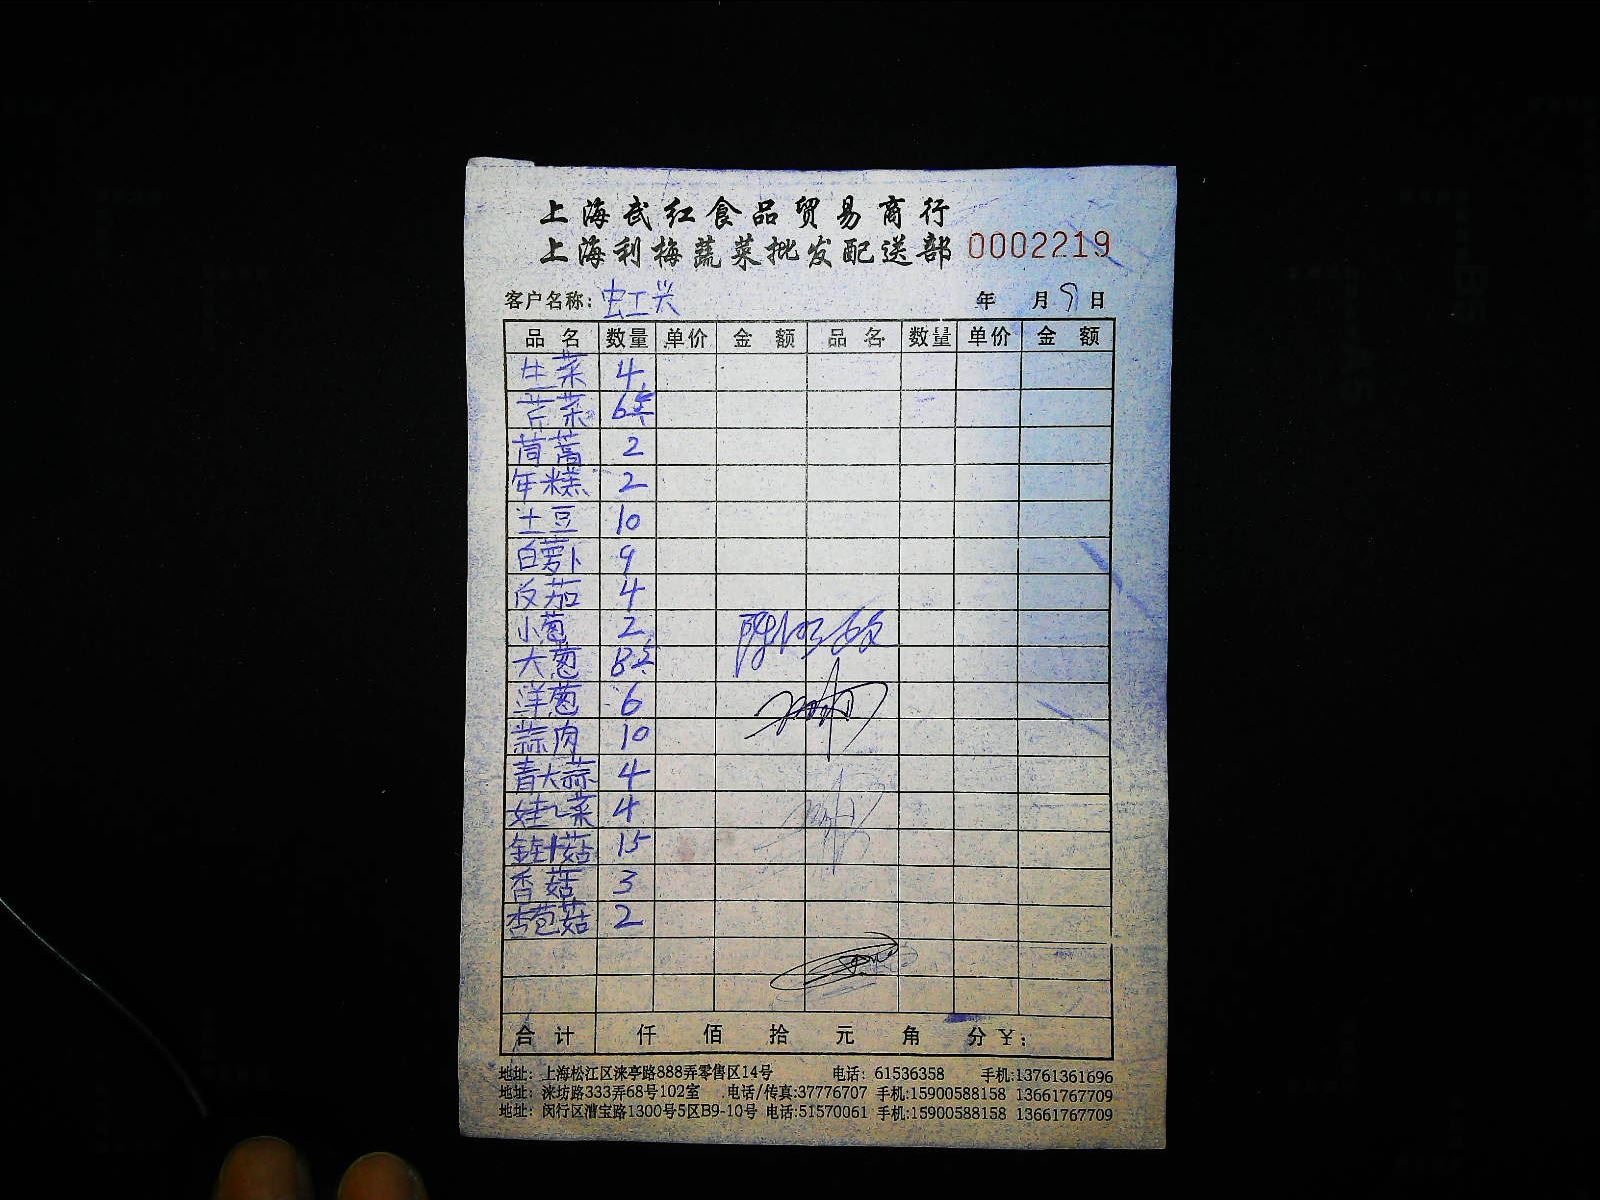 上海武红食品贸易商行
上海利梅蔬菜批发配送部 0002219
客户名称: 虹兴 年 月 9 日
品名 数量 单价 金额 品名 数量 单价 金额
生菜 4
芹菜 6
茼蒿 2
年糕 2
土豆 10
白萝卜 9
茄 4
小葱 2
大葱 8
洋葱 6
蒜肉 10
青大蒜 4
娃娃菜 4
金针菇 15
香菇 3
杏苞菇 2
合计 仟 佰 拾 元 角 分 ¥:
地址: 上海松江区涞亭路888弄零售区14号 电话: 61536358 手机:13761361696
地址: 涞坊路333弄68号102室 电话/传真:37776707 手机:15900588158 13661767709
地址: 闵行区漕宝路1300号5区B9-10号 电话:51570061 手机:15900588158 13661767709